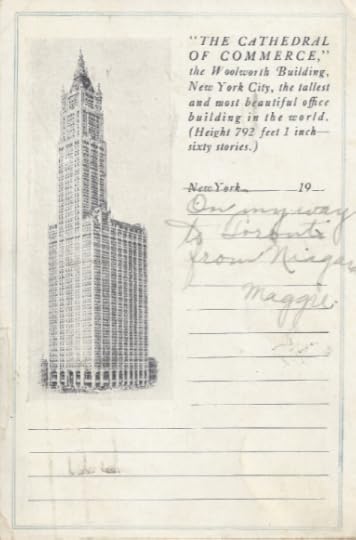 "THE CATHEDRAL
OF COMMERCE,"
the Woolworth Building,
New York City, the tallest
and most beautiful office
building in the world.
(Height 792 feet 1 inch—
sixty stories.)
New York 19
On my way
to Toronto
from Niagar
Maggie